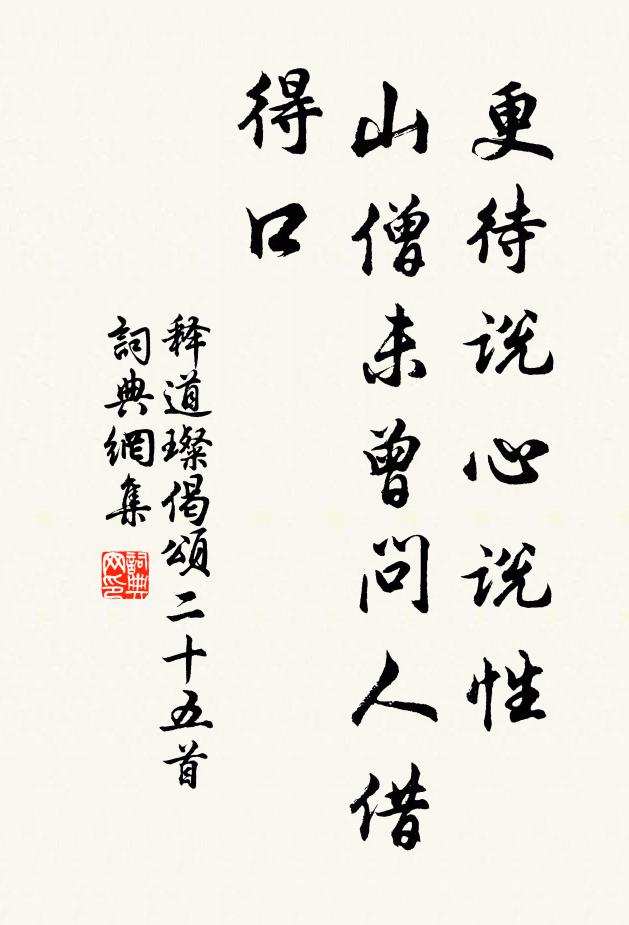 更待说心说性
山僧未曾问人借
得口
释道璨偈頌二十五首
詞典網集
詞典网印